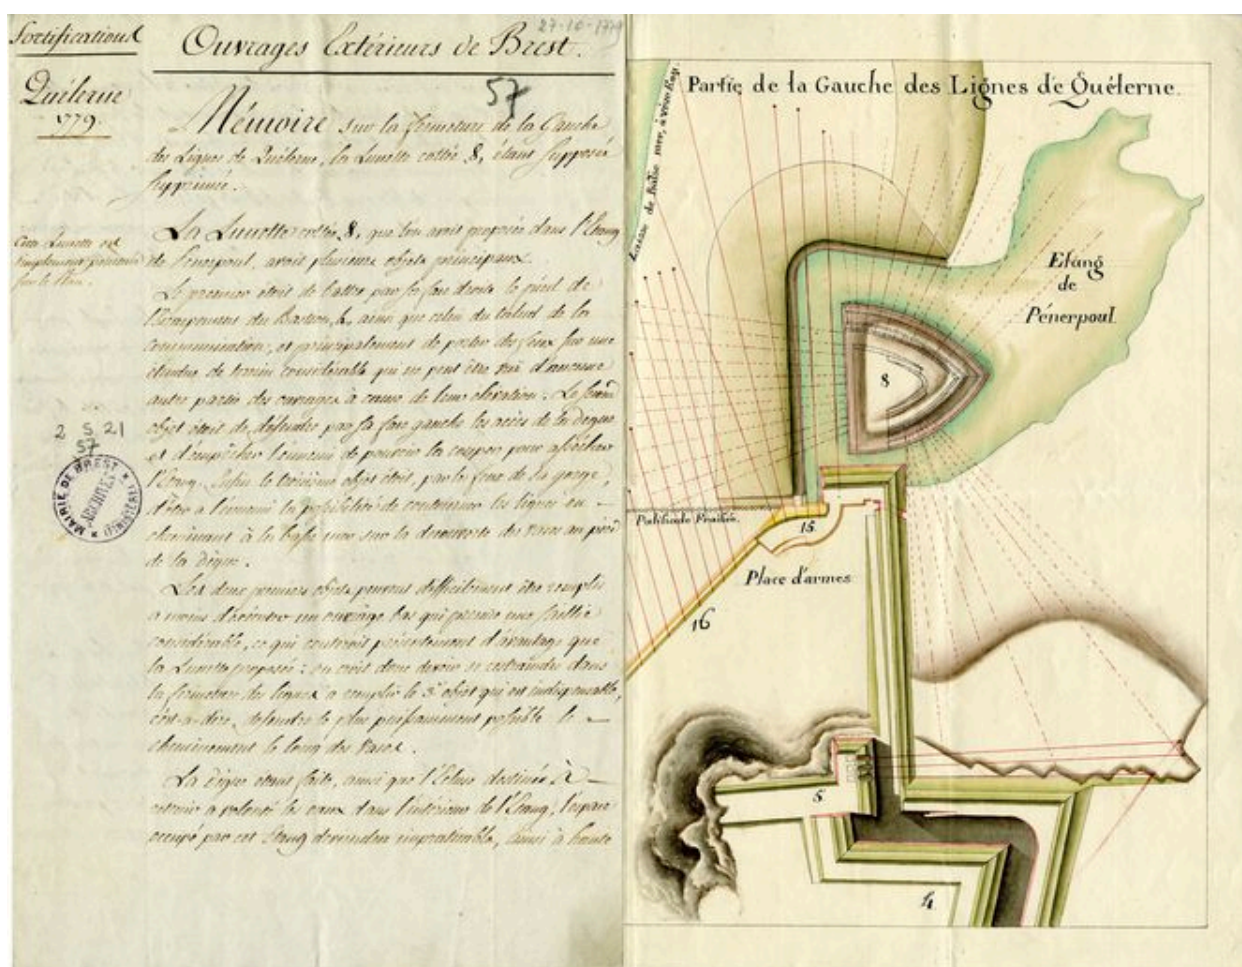 Fortifications
Quélerne
1779.
27-10-1779
Ouvrages Extérieurs de Brest.
57
Mémoire sur la fermeture de la Gauche
des Lignes de Quélerne, la Lunette cottée 8, étant supposée
supprimée.
Cette Lunette est
simplement ponctuée
sur le Plan.
La Lunette cottée 8, que l'on avait proposée dans l'Etang
de Penerpoul, avait plusieurs objets principaux.
Le premier étoit de battre par sa face droite le pied de
l'Escarpement du Bastion 4, ainsi que celui du talud de la
communication, et principalement de porter des feux sur une
étendue de terrein considérable qui ne peut être vû d'aucune
autre partie des ouvrages à cause de leur élévation. Le second
objet étoit de défendre par sa face gauche les accès de la digue
et d'empêcher l'ennemi de pouvoir la couper pour assécher
l'Etang. Enfin le troisième objet étoit, par les feux de la gorge,
d'ôter à l'ennemi la possibilité de contourner les lignes en
cheminant à la basse mer sur la découverte des vases au pied
de la digue.
Les deux premiers objets peuvent difficilement être remplis
à moins d'exécuter un ouvrage bas qui prenne une saillie
considérable, ce qui coûteroit présentement d'avantage que
la Lunette proposée: on croit donc devoir se restraindre dans
la fermeture des lignes à remplir le 3e objet qui est indispensable,
c'est-à-dire, défendre le plus puissamment possible le
cheminement le long des vases.
La digue étant faite, ainsi que l'Ecluse destinée à
retenir à volonté les eaux dans l'intérieur de l'Etang, l'espace
occupé par cet étang deviendra impraticable, ainsi à haute
2 S 21
57
MAIRIE DE BREST
ARCHIVES
(FINISTÈRE)
Partie de la Gauche des Lignes de Quélerne.
Laisse de Basse mer, à vive Eau.
Etang
de
Pénerpoul.
8
Palissade Fraisée.
15
Place d'armes
16
5
4